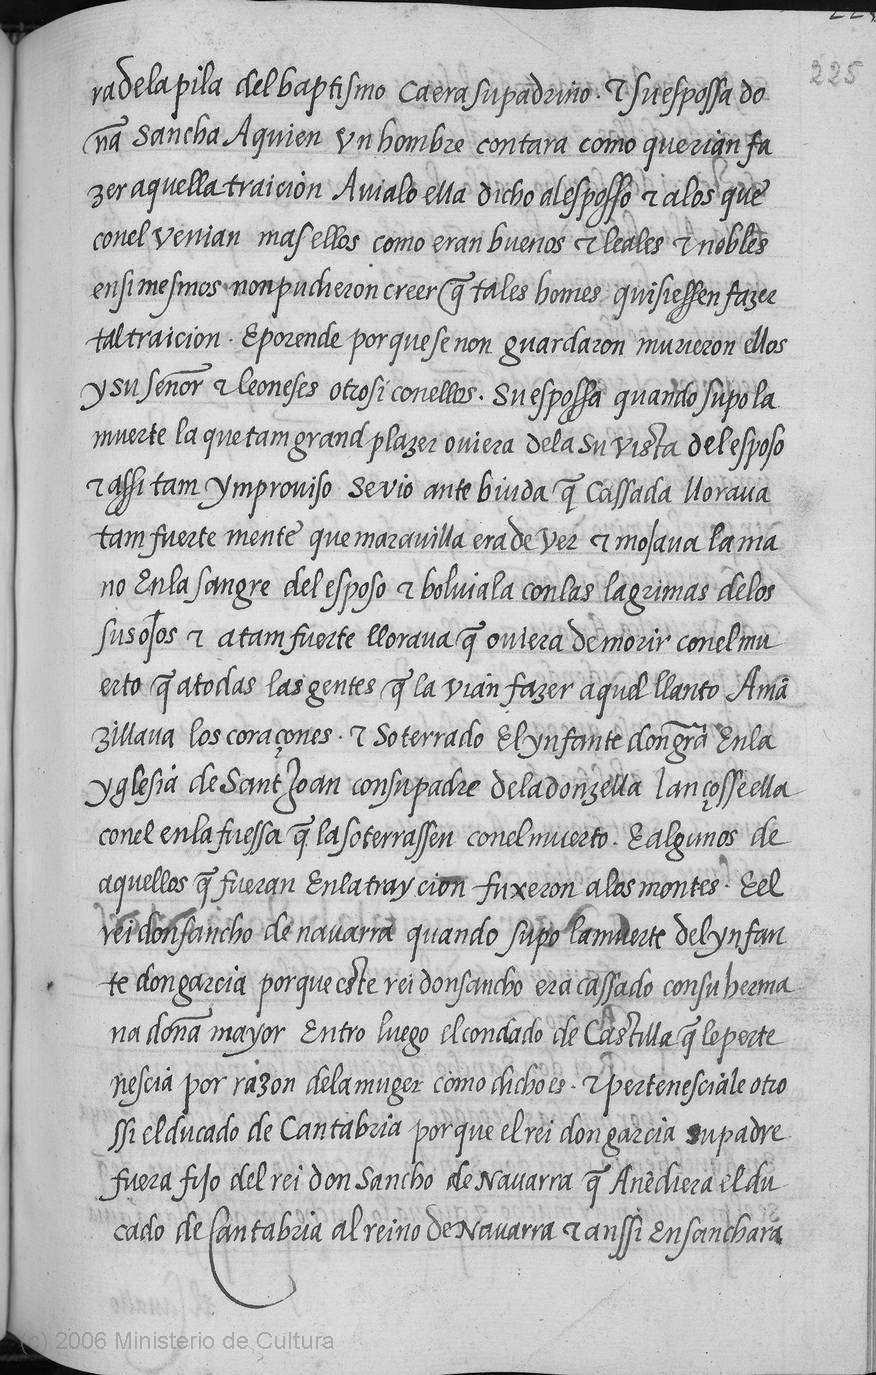 225
ra de la pila del baptismo Ca era su padrino · τ su espossa do
ña Sancha A quien vn hombre contara como querian fa
zer aquella traicion Auialo ella dicho al esposso τ a los que
con el venian mas ellos como eran buenos τ leales τ nobles
en si mesmos non pudieron creer q̃ tales homes quisiessen fazer
tal traicion · E por ende por que se non guardaron murieron ellos
y su señor τ leoneses otrosi con ellos · Su espossa quando supo la
muerte la que tam grand plazer ouiera de la su vista del esposo
τ assi tam ymprouiso se vio ante biuda q̃ Cassada lloraua
tam fuerte mente que marauilla era de ver τ mojaua la ma
no En la sangre del esposo τ boluiala con las lagrimas de los
sus ojos τ a tam fuerte lloraua q̃ ouiera de morir con el mu
erto q̃ a todas las gentes q̃ la vian fazer aquel llanto Amã
zillaua los coraçones · τ Soterrado El ynfante don gr̃a En la
yglesia de Sant Joan con su padre de la donzella lançosse ella
con el en la fuessa q̃ la soterrassen con el muerto · E algunos de
aquellos q̃ fueran En la traycion fuxeron a los montes · E el
rei don sancho de nauarra quando supo la muerte del ynfan
te don garcia por que este rei don sancho era cassado con su herma
na doña mayor Entro luego el condado de Castilla q̃ le perte
nescia por razon de la muger como dicho es · τ pertenesciale otro
ssi el ducado de Cantabria por que el rei don garcia su padre
fuera fijo del rei don Sancho de Nauarra q̃ Añediera el du
cado de Cantabria al reino de Nauarra τ anssi Ensanchara
(c) 2006 Ministerio de Cultura